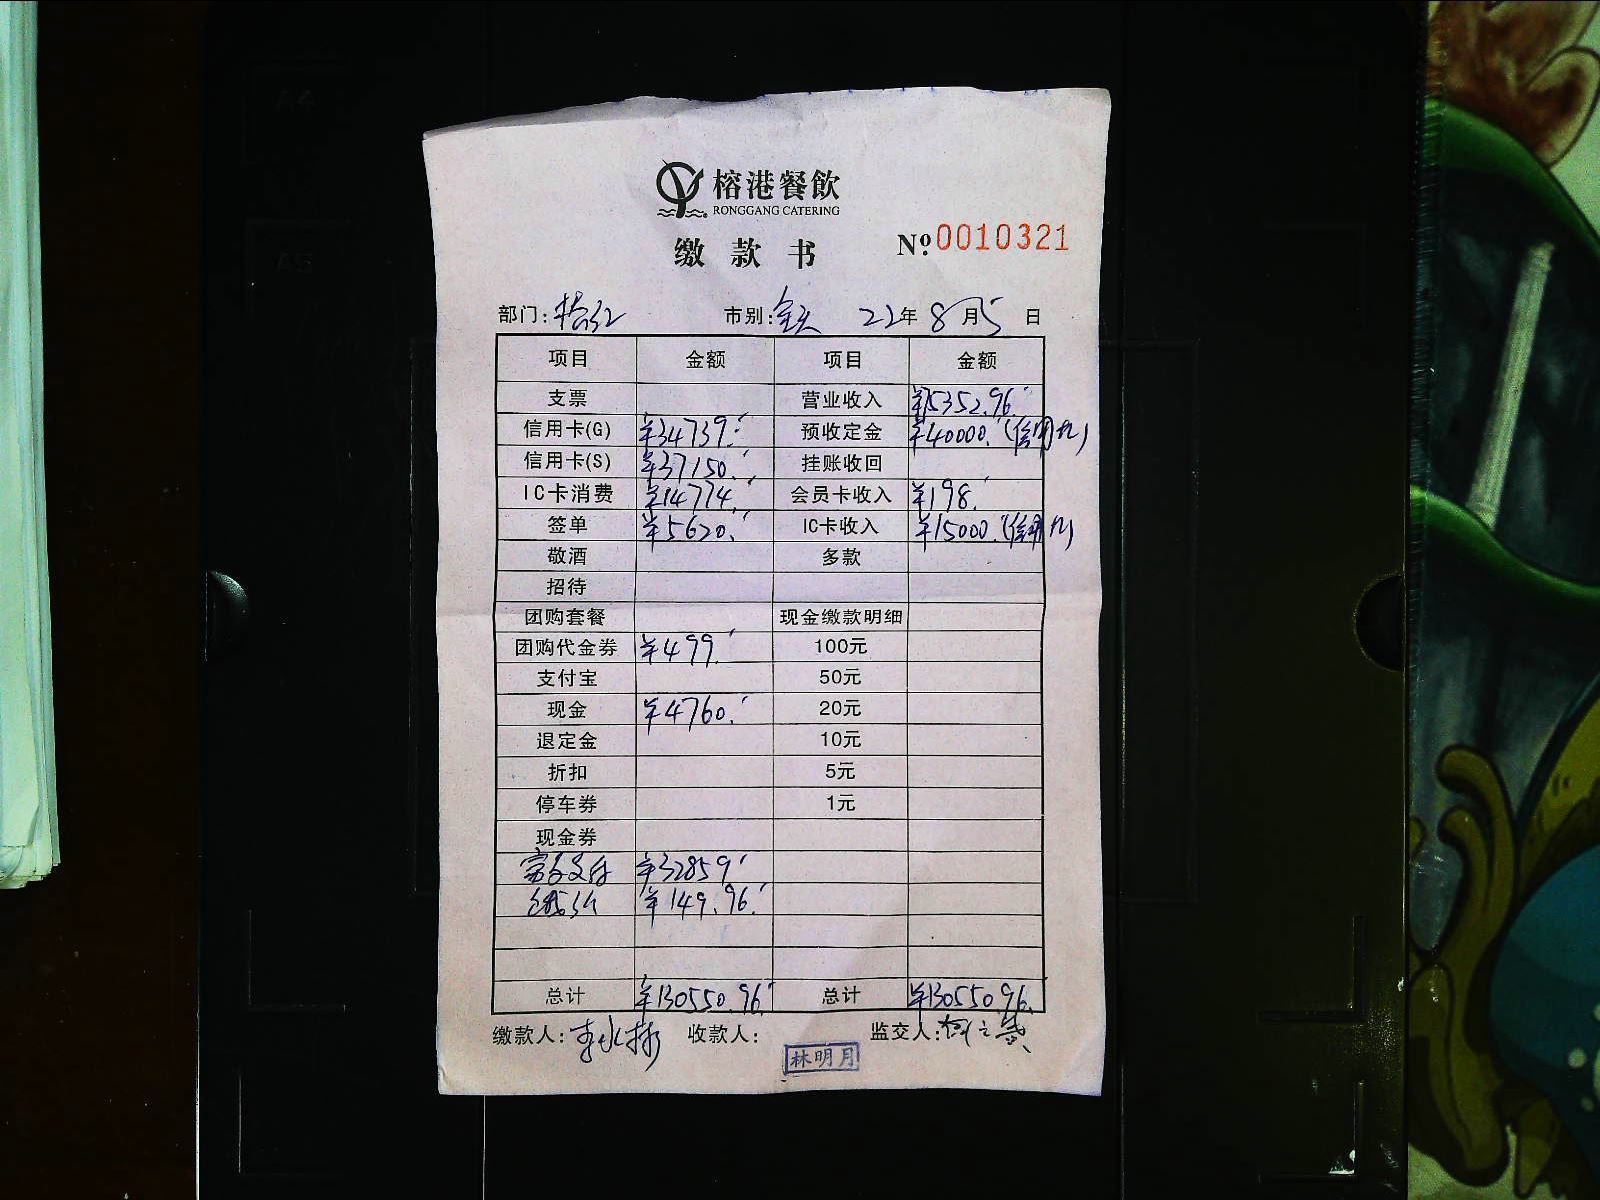 A4
A5
榕港餐飲
RONGGANG CATERING
缴款书
№ 0010321
部门: 市别:全天 22年8月5日
项目 金额 项目 金额
支票 营业收入 ¥75352.96
信用卡(G) ¥34739. 预收定金 ¥40000.(信用卡)
信用卡(S) ¥37150. 挂账收回
IC卡消费 ¥14774. 会员卡收入 ¥198.
签单 ¥5620. IC卡收入 ¥15000.(信用卡)
敬酒 多款
招待
团购套餐 现金缴款明细
团购代金券 ¥499. 100元
支付宝 50元
现金 ¥4760. 20元
退定金 10元
折扣 5元
停车券 1元
现金券
富友支付 ¥32859
¥149.96
总计 ¥130550.96 总计 ¥130550.96
缴款人: 收款人: 监交人:
林明月